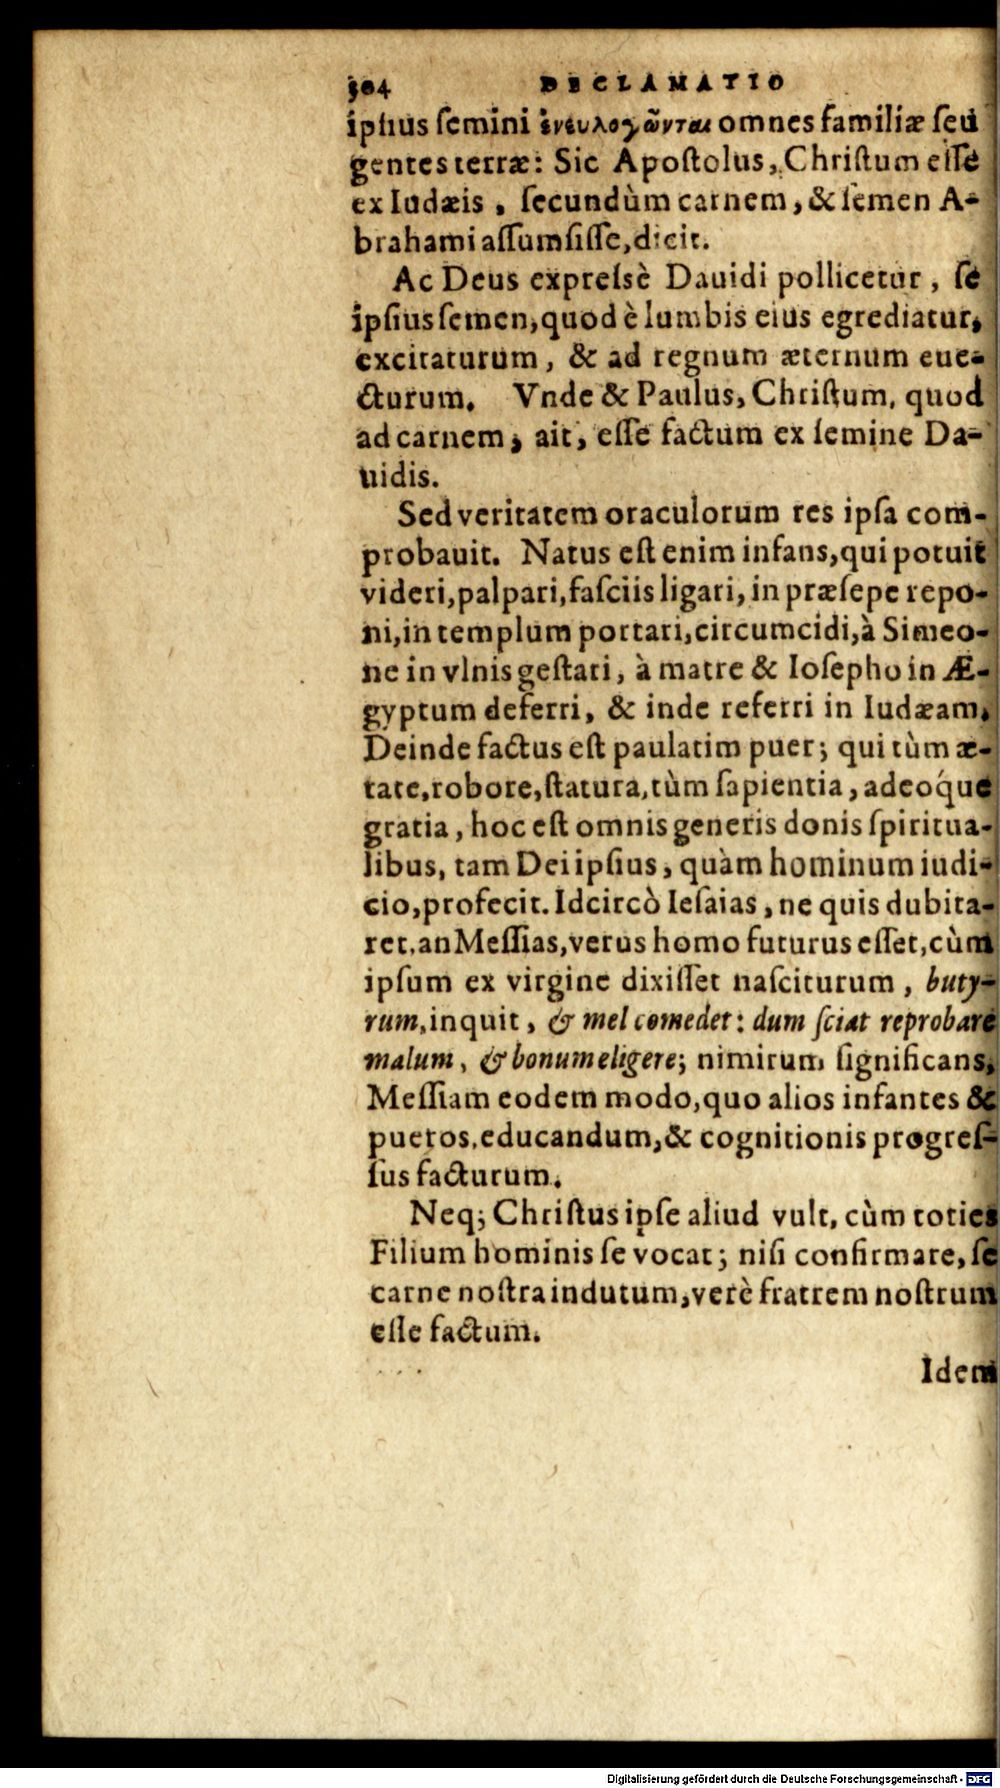 304 DECLAMATIO
ipſius ſemini ἐνευλογῶνται omnes familiæ ſeu
gentes terræ: Sic Apoſtolus, Chriſtum eſſe
ex Iudæis, ſecundùm carnem, & ſemen A-
brahami aſſumſiſſe, dicit.
Ac Deus expreſsè Dauidi pollicetur, ſe
ipſius ſemen, quod è lumbis eius egrediatur,
excitaturum, & ad regnum æternum eue-
cturum. Vnde & Paulus, Chriſtum, quod
ad carnem, ait, eſſe factum ex ſemine Da-
uidis.
Sed veritatem oraculorum res ipſa com-
probauit. Natus eſt enim infans, qui potuit
videri, palpari, faſciis ligari, in præſepe repo-
ni, in templum portari, circumcidi, à Simeo-
ne in vlnis geſtari, à matre & Ioſepho in Æ-
gyptum deferri, & inde referri in Iudæam.
Deinde factus eſt paulatim puer; qui tùm æ-
tate, robore, ſtatura, tùm ſapientia, adeóque
gratia, hoc eſt omnis generis donis ſpiritua-
libus, tam Dei ipſius, quàm hominum iudi-
cio, profecit. Idcircò Ieſaias, ne quis dubita-
ret, an Meſſias, verus homo futurus eſſet, cùm
ipſum ex virgine dixiſſet naſciturum, buty-
rum, inquit, & mel comedet: dum ſciat reprobare
malum, & bonum eligere; nimirum ſignificans,
Meſſiam eodem modo, quo alios infantes &
pueros, educandum, & cognitionis progreſ-
ſus facturum.
Neq; Chriſtus ipſe aliud vult, cùm toties
Filium hominis ſe vocat; niſi confirmare, ſe
carne noſtra indutum, verè fratrem noſtrum
eſſe factum.
Idem
Digitalisierung gefördert durch die Deutsche Forschungsgemeinschaft - DFG